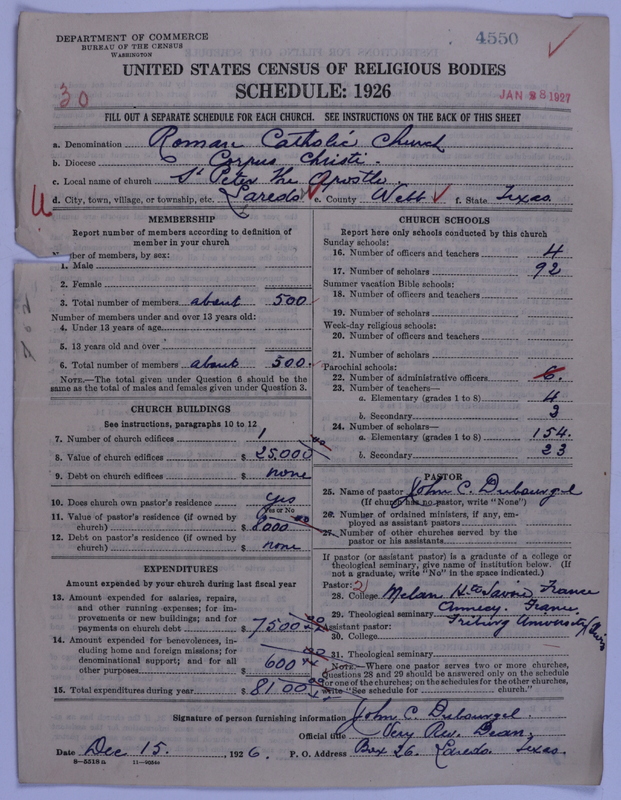 DEPARTMENT OF COMMERCE
BUREAU OF THE CENSUS
WASHINGTON
4550
UNITED STATES CENSUS OF RELIGIOUS BODIES
SCHEDULE: 1926
30
JAN 28 1927
FILL OUT A SEPARATE SCHEDULE FOR EACH CHURCH. SEE INSTRUCTIONS ON THE BACK OF THIS SHEET
a. Denomination Roman Catholic Church
b. Diocese Corpus Christi.
c. Local name of church St Peter the Apostle.
d. City, town, village, or township, etc. Laredo e. County Webb f. State Texas.
U
MEMBERSHIP
Report number of members according to definition of
member in your church
Number of members, by sex:
1. Male
2. Female
3. Total number of members about 500
Number of members under and over 13 years old:
4. Under 13 years of age
5. 13 years old and over
6. Total number of members about 500.
NOTE.—The total given under Question 6 should be the
same as the total of males and females given under Question 3.
CHURCH BUILDINGS
See instructions, paragraphs 10 to 12
7. Number of church edifices 1
8. Value of church edifices $ 25.000
9. Debt on church edifices $ none
10. Does church own pastor's residence yes
Yes or No
11. Value of pastor's residence (if owned by
church) $ 8000
12. Debt on pastor's residence (if owned by
church) $ none
EXPENDITURES
Amount expended by your church during last fiscal year
13. Amount expended for salaries, repairs,
and other running expenses; for im-
provements or new buildings; and for
payments on church debt $ 7500
14. Amount expended for benevolences, in-
cluding home and foreign missions; for
denominational support; and for all
other purposes $ 600
15. Total expenditures during year $ 8100
CHURCH SCHOOLS
Report here only schools conducted by this church
Sunday schools:
16. Number of officers and teachers 4
17. Number of scholars 92
Summer vacation Bible schools:
18. Number of officers and teachers
19. Number of scholars
Week-day religious schools:
20. Number of officers and teachers
21. Number of scholars
Parochial schools:
22. Number of administrative officers 6.
23. Number of teachers—
a. Elementary (grades 1 to 8) 4
b. Secondary 2
24. Number of scholars—
a. Elementary (grades 1 to 8) 154.
b. Secondary 23
PASTOR
25. Name of pastor John C. Dubourgel
(If church has no pastor, write "None")
26. Number of ordained ministers, if any, em-
ployed as assistant pastors
27. Number of other churches served by the
pastor or his assistants
If pastor (or assistant pastor) is a graduate of a college or
theological seminary, give name of institution below. (If
not a graduate, write "No" in the space indicated.)
Pastor: 2
28. College Melan Hte Savoie France
29. Theological seminary Annecy. France.
Assistant pastor:
30. College
31. Theological seminary
NOTE.—Where one pastor serves two or more churches,
Questions 28 and 29 should be answered only on the schedule
for one of the churches; on the schedules for the other churches,
write "See schedule for church."
Signature of person furnishing information John C. Dubourgel.
Official title Very Rev. Dean.
Date Dec 15. 1926. P. O. Address Box 26. Laredo. Texas.
8-5518a 11-90556